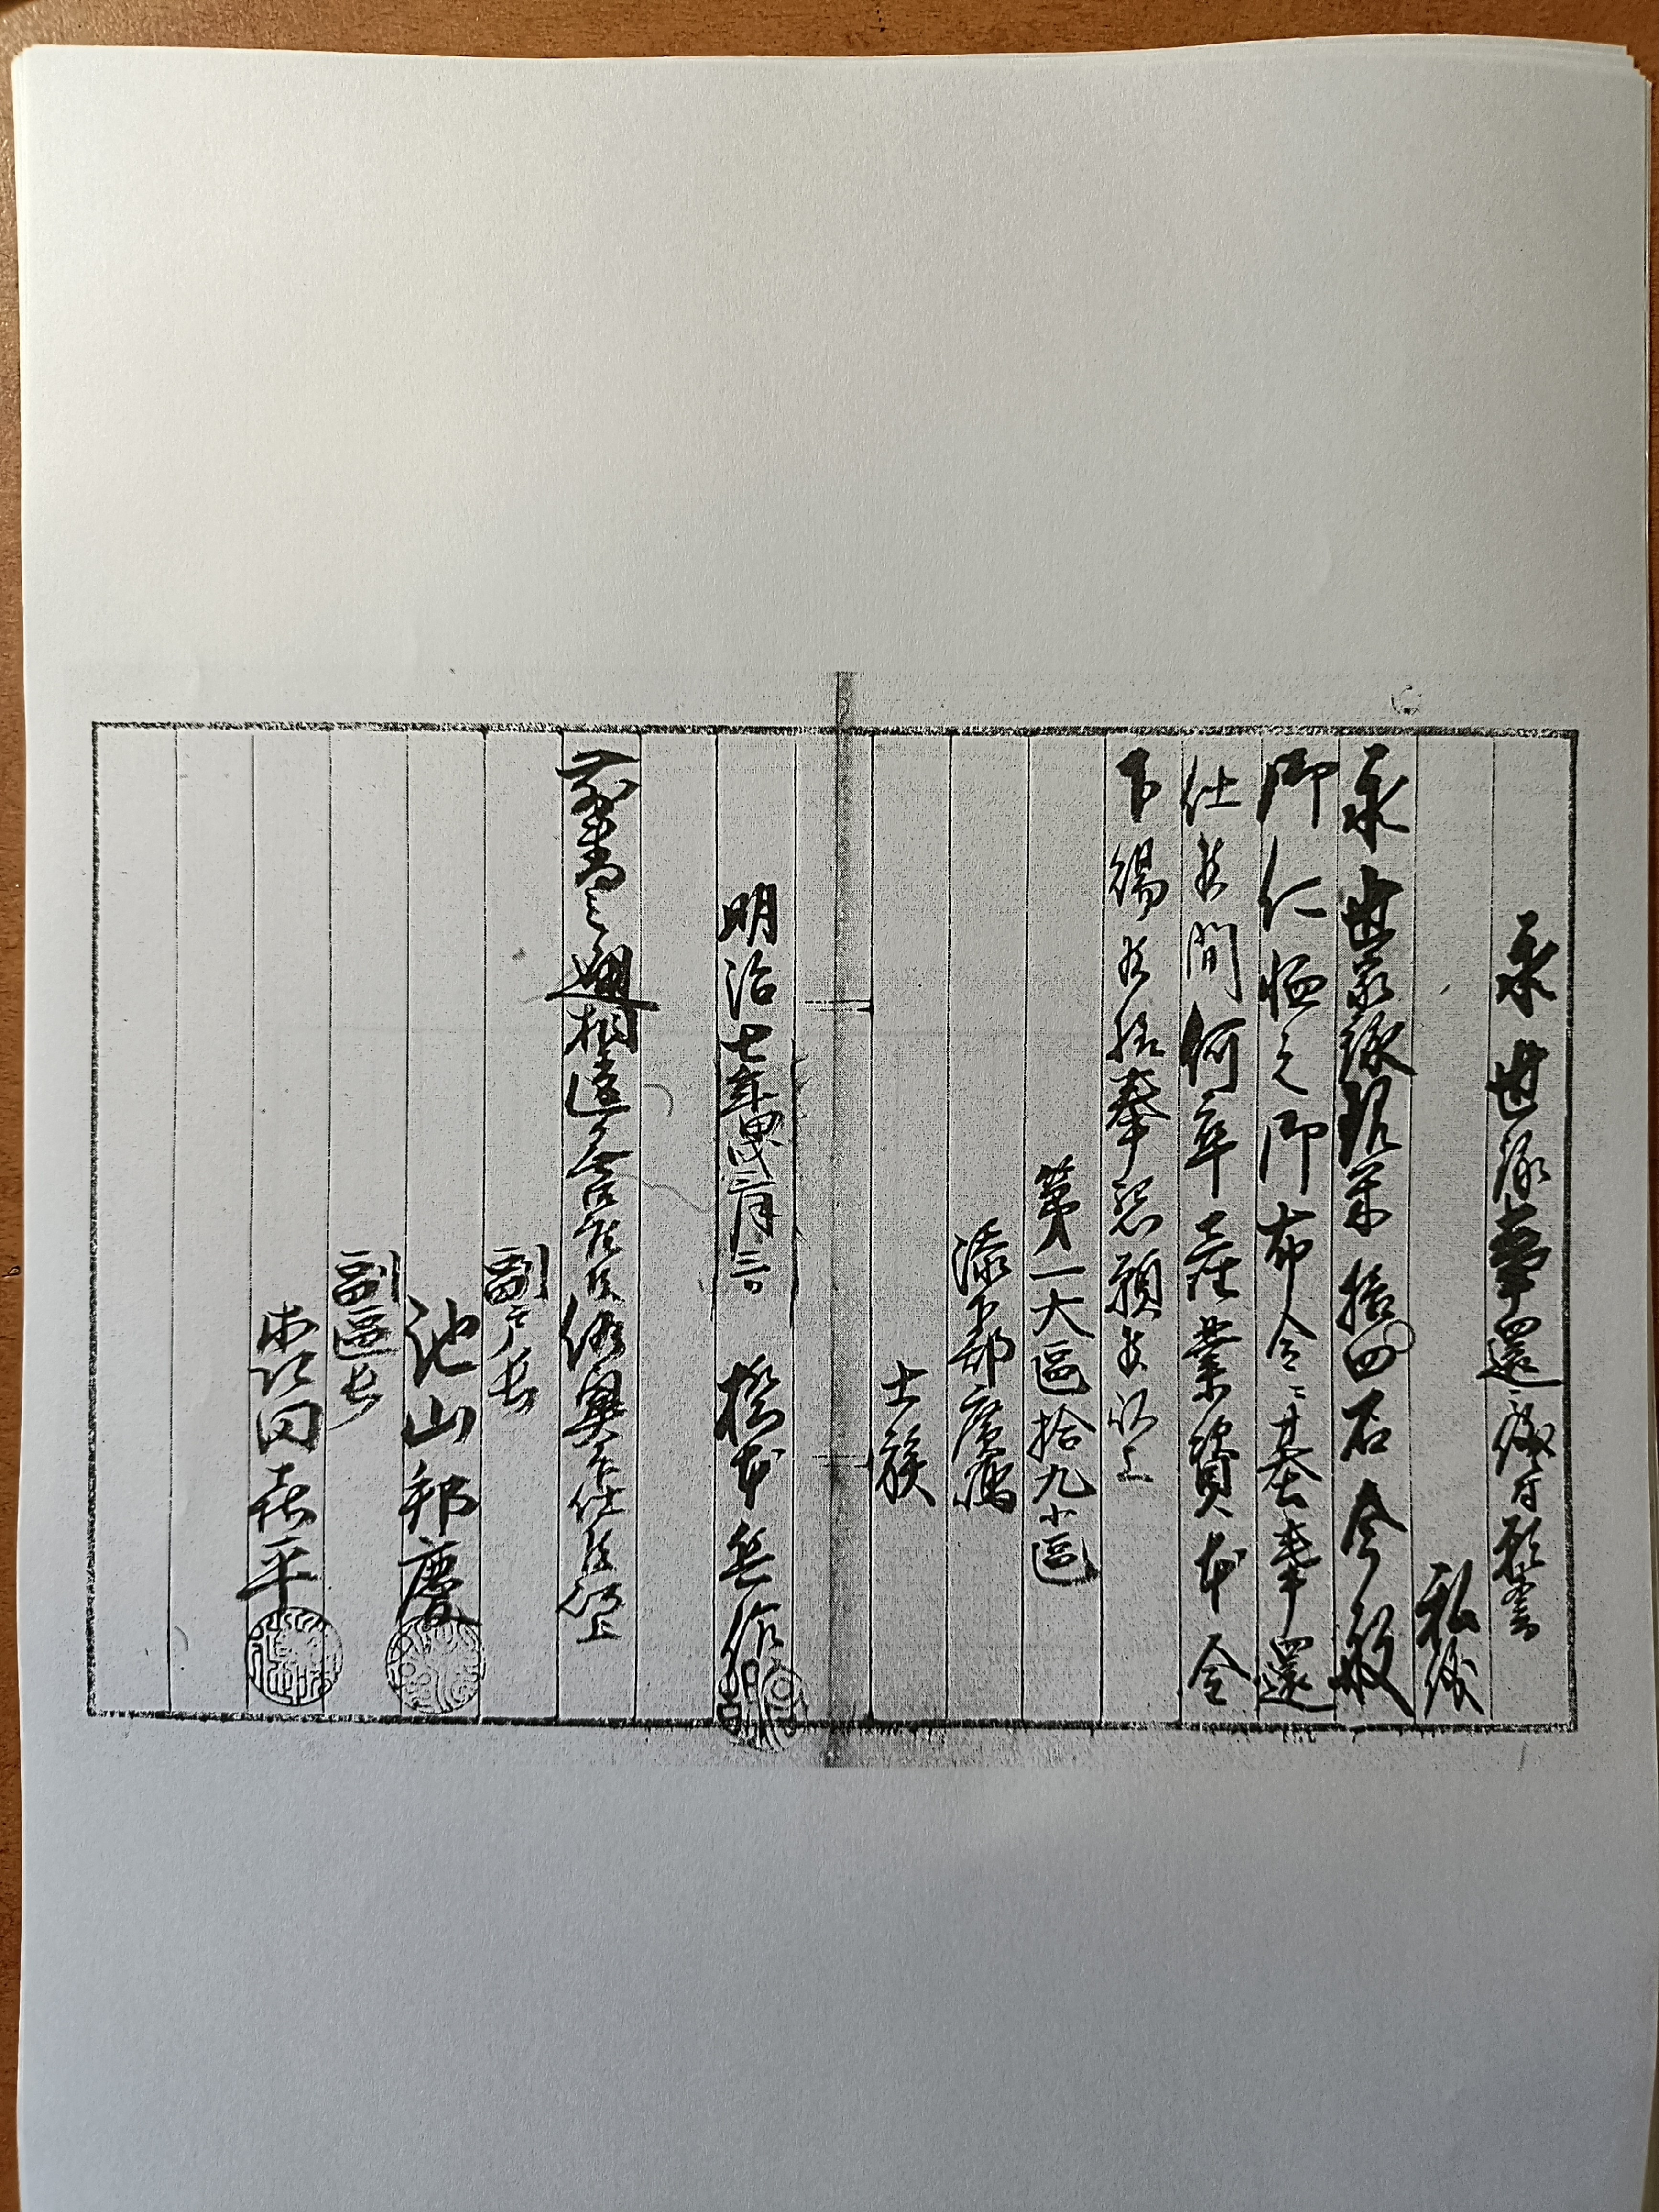 永世禄奉還之儀ニ付願書
私儀
永世家禄現米拾四石今般
御仁恤之御布令ニ基奉還
仕度間何卒産業資本金
下賜度此段奉懇願候以上
第一大區拾九小區
添下郡
士族
明治七年甲戌二月三日 橋本
前書之通相違無御座候依奥印仕候以上
副戸長
池山邦慶
副區長
田喜平